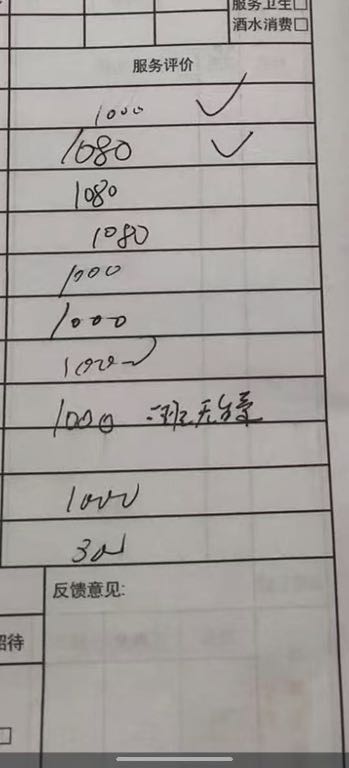 服务卫生□
酒水消费□
服务评价
1000 ✓
1080 ✓
1080
1080
1000
1000
1000
1000 班无
1000
300
反馈意见:
招待
□